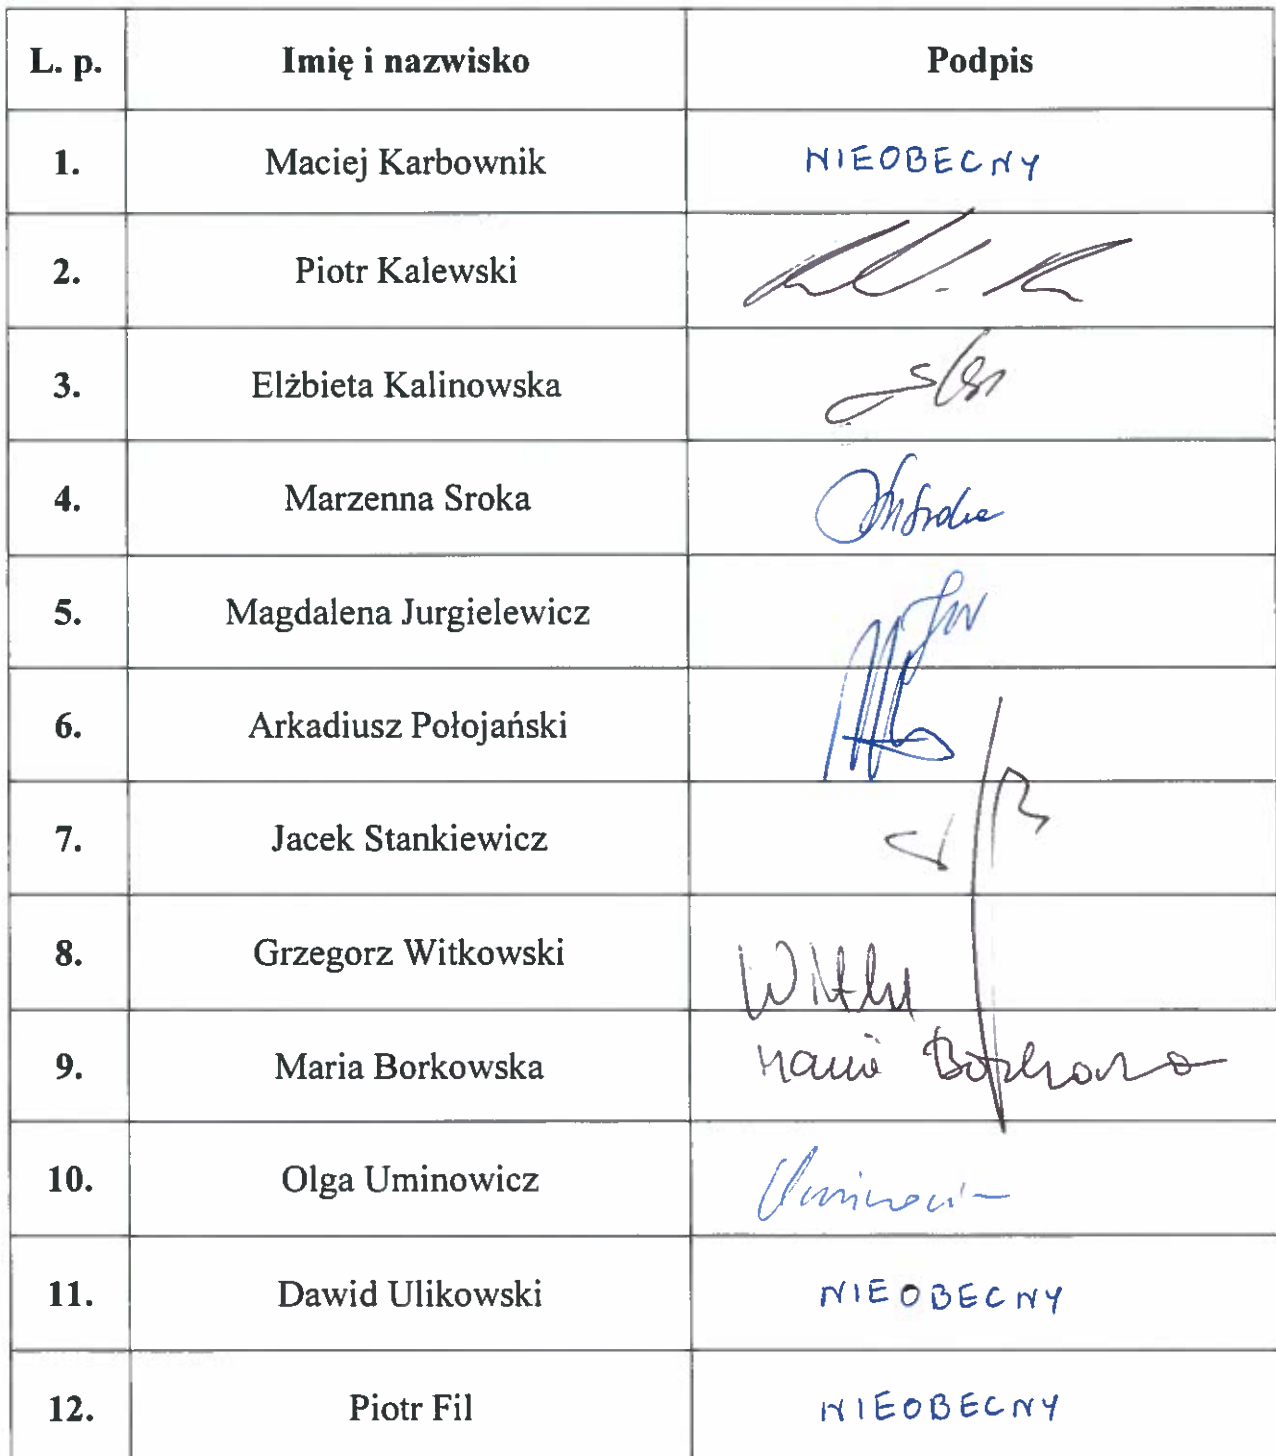 L. p. Imię i nazwisko Podpis
1. Maciej Karbownik NIEOBECNY
2. Piotr Kalewski
3. Elżbieta Kalinowska
4. Marzenna Sroka
5. Magdalena Jurgielewicz
6. Arkadiusz Połojański
7. Jacek Stankiewicz
8. Grzegorz Witkowski
9. Maria Borkowska Maria Borkowska
10. Olga Uminowicz
11. Dawid Ulikowski NIEOBECNY
12. Piotr Fil NIEOBECNY